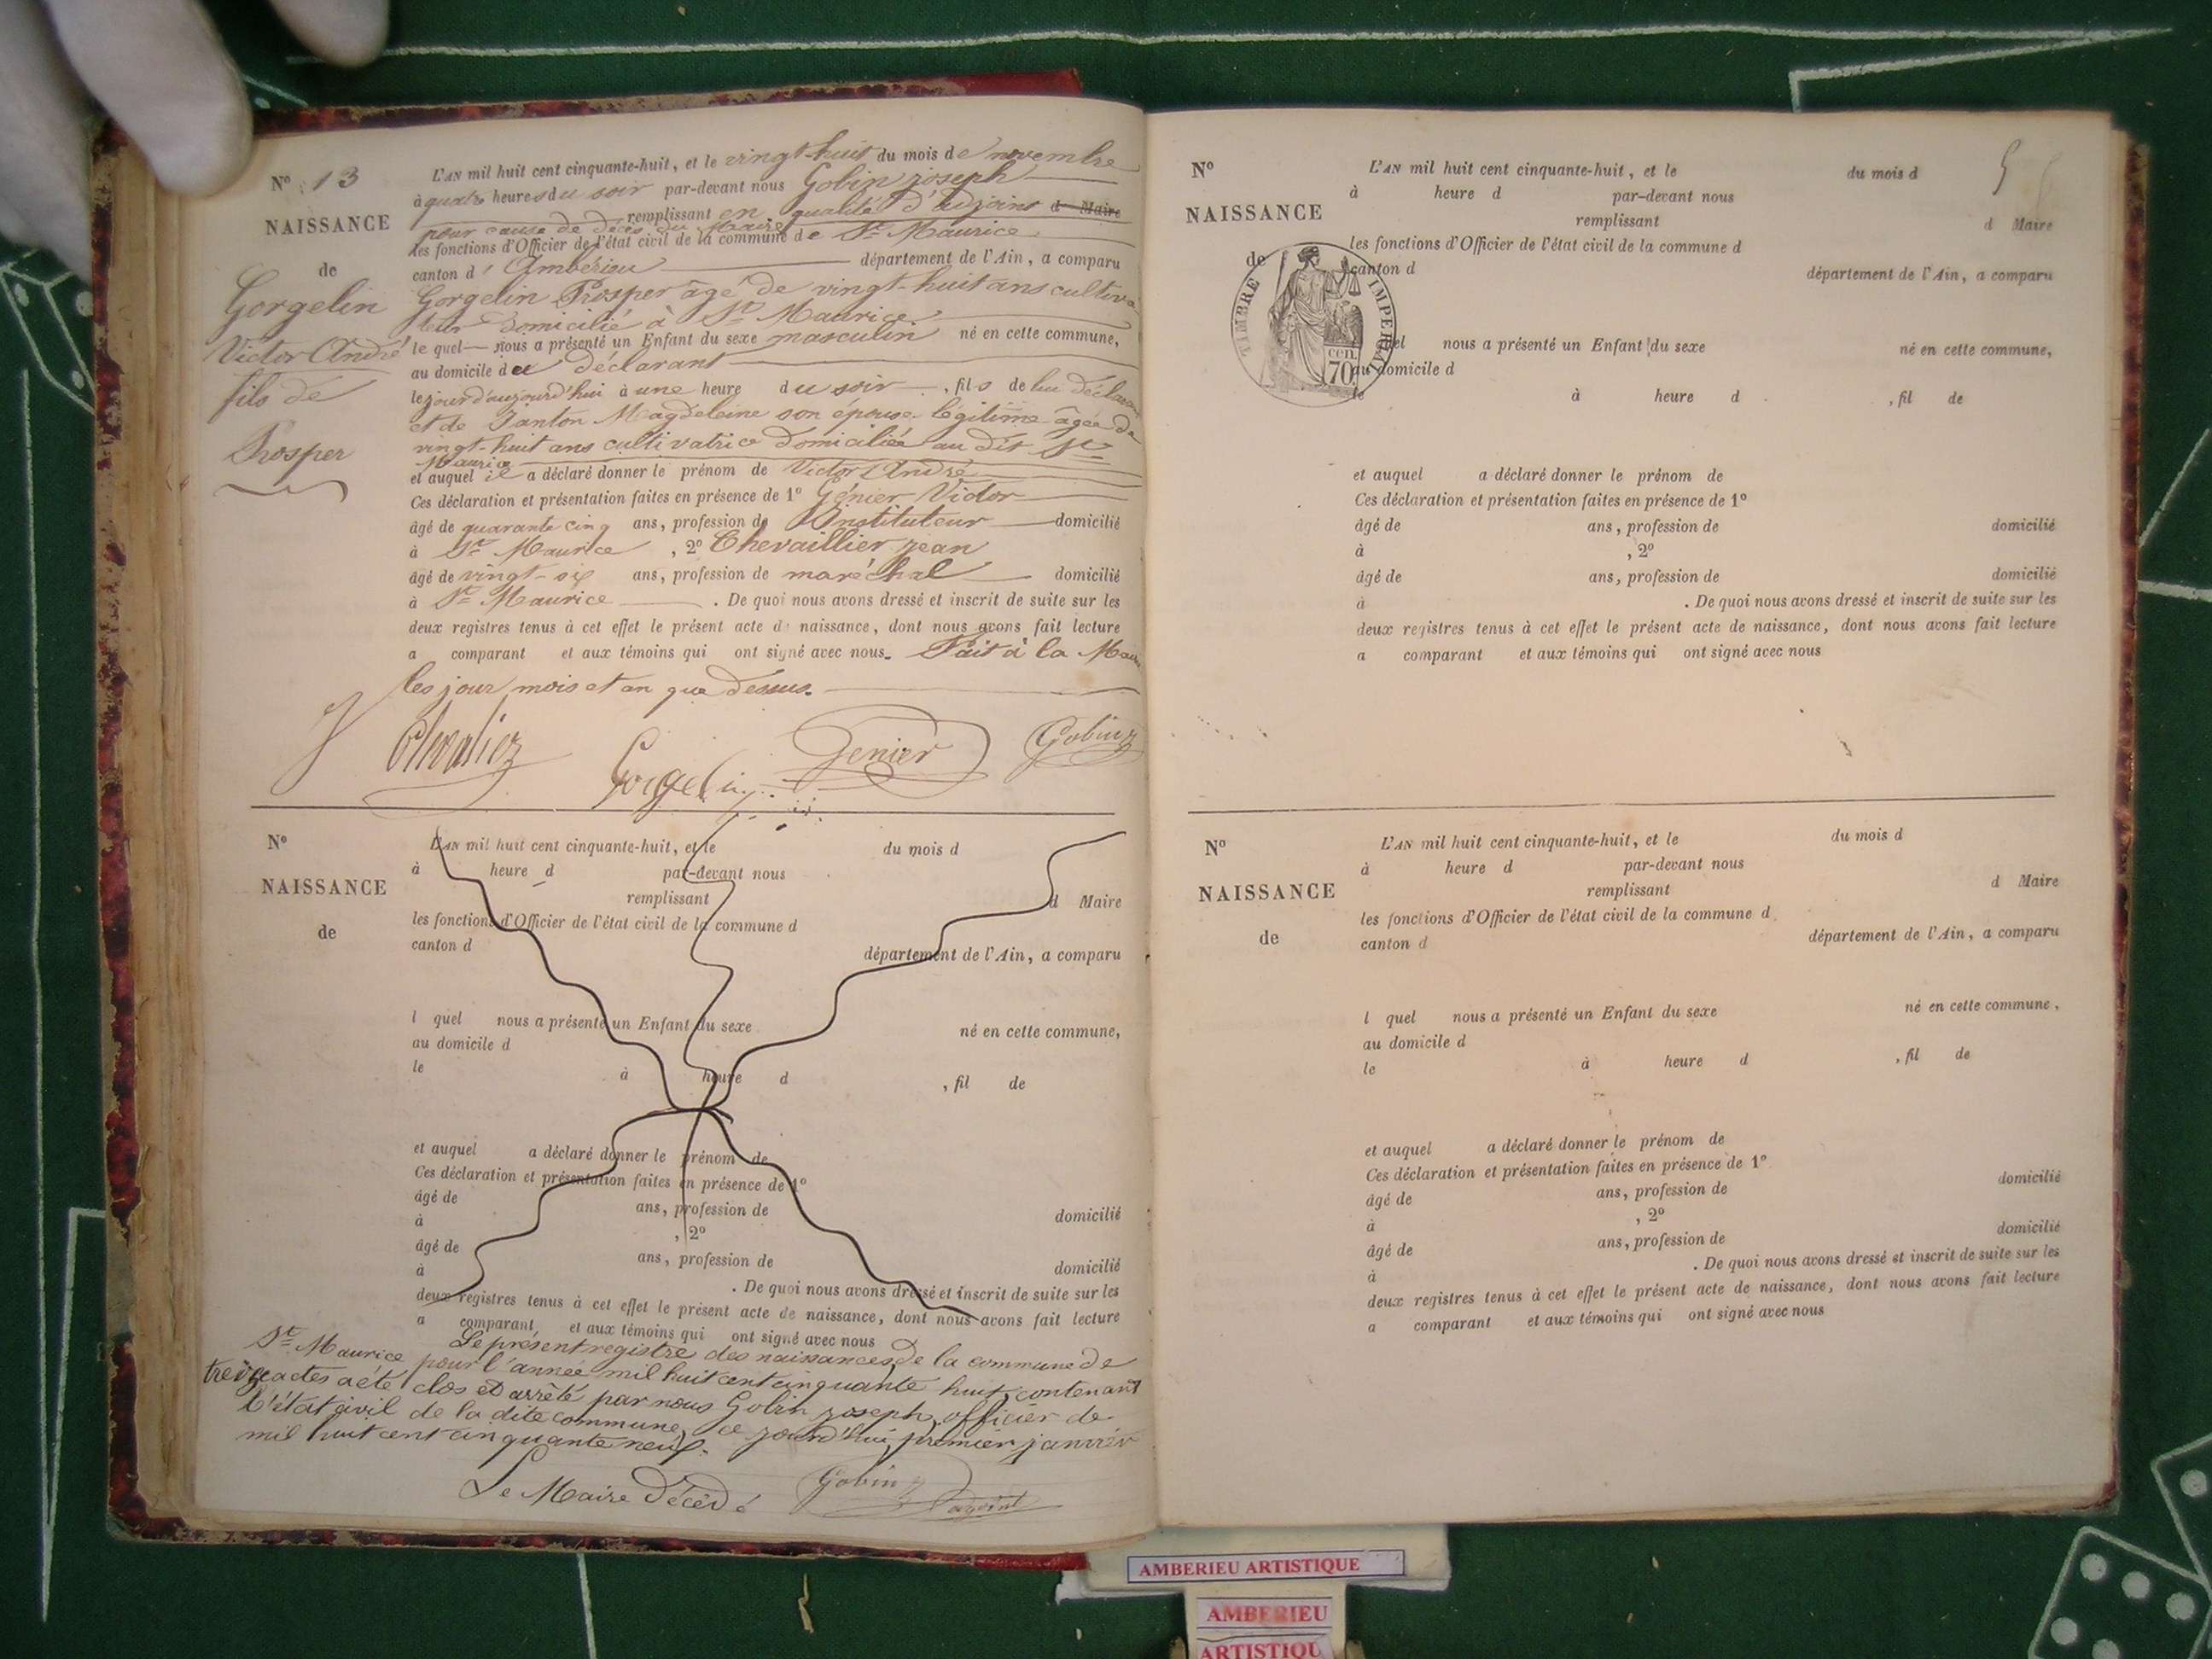 Nº 13
NAISSANCE
de
Gorgelin
Victor André
fils de
Prosper
L'AN mil huit cent cinquante-huit, et le vingt-huit du mois de novembre
à quatre heures du soir par-devant nous Gobin joseph
remplissant en qualité d'adjoint d Maire
pour cause de décès du Maire
les fonctions d'Officier de l'état civil de la commune de St Maurice
canton d'Ambérieu département de l'Ain, a comparu
Gorgelin Prosper âgé de vingt-huit ans cultiva
teur domicilié à St Maurice
le quel nous a présenté un Enfant du sexe masculin né en cette commune,
au domicile du déclarant
le jour d'aujourd'hui à une heure du soir, fils de lui déclarant
et de Janton Magdeleine son épouse légitime âgée de
vingt-huit ans cultivatrice domiciliée au dit St
Maurice
et auquel il a déclaré donner le prénom de Victor André
Ces déclaration et présentation faites en présence de 1º Génier Victor
âgé de quarante cinq ans, profession de Instituteur domicilié
à St Maurice, 2º Chevaillier jean
âgé de vingt-six ans, profession de maréchal domicilié
à St Maurice. De quoi nous avons dressé et inscrit de suite sur les
deux registres tenus à cet effet le présent acte de naissance, dont nous avons fait lecture
a comparant et aux témoins qui ont signé avec nous. Fait à la Mairie
les jour, mois et an que dessus.
J Chevalier Gorgelin Genier Gobin
Nº
NAISSANCE
de
L'AN mil huit cent cinquante-huit, et le du mois d
à heure d par-devant nous
remplissant d Maire
les fonctions d'Officier de l'état civil de la commune d
canton d département de l'Ain, a comparu
l quel nous a présenté un Enfant du sexe né en cette commune,
au domicile d
le à heure d , fil de
et auquel a déclaré donner le prénom de
Ces déclaration et présentation faites en présence de 1º
âgé de ans, profession de domicilié
à , 2º
âgé de ans, profession de domicilié
à . De quoi nous avons dressé et inscrit de suite sur les
deux registres tenus à cet effet le présent acte de naissance, dont nous avons fait lecture
a comparant et aux témoins qui ont signé avec nous
Le présent registre des naissances de la commune de
St Maurice pour l'année mil huit cent cinquante huit, contenant
treize actes a été clos et arrêté par nous Gobin joseph, officier de
l'état civil de la dite commune, ce jourd'hui premier janvier
mil huit cent cinquante neuf.
Le Maire décédé Gobin adjoint
5
Nº
NAISSANCE
de
TIMBRE IMPERIAL
70 cen.
L'AN mil huit cent cinquante-huit, et le du mois d
à heure d par-devant nous
remplissant d Maire
les fonctions d'Officier de l'état civil de la commune d
canton d département de l'Ain, a comparu
quel nous a présenté un Enfant du sexe né en cette commune,
au domicile d
le à heure d , fil de
et auquel a déclaré donner le prénom de
Ces déclaration et présentation faites en présence de 1º
âgé de ans, profession de domicilié
à , 2º
âgé de ans, profession de domicilié
à . De quoi nous avons dressé et inscrit de suite sur les
deux registres tenus à cet effet le présent acte de naissance, dont nous avons fait lecture
a comparant et aux témoins qui ont signé avec nous
Nº
NAISSANCE
de
L'AN mil huit cent cinquante-huit, et le du mois d
à heure d par-devant nous
remplissant d Maire
les fonctions d'Officier de l'état civil de la commune d
canton d département de l'Ain, a comparu
l quel nous a présenté un Enfant du sexe né en cette commune,
au domicile d
le à heure d , fil de
et auquel a déclaré donner le prénom de
Ces déclaration et présentation faites en présence de 1º
âgé de ans, profession de domicilié
à , 2º
âgé de ans, profession de domicilié
à . De quoi nous avons dressé et inscrit de suite sur les
deux registres tenus à cet effet le présent acte de naissance, dont nous avons fait lecture
a comparant et aux témoins qui ont signé avec nous
AMBERIEU ARTISTIQUE
AMBERIEU
ARTISTIQU